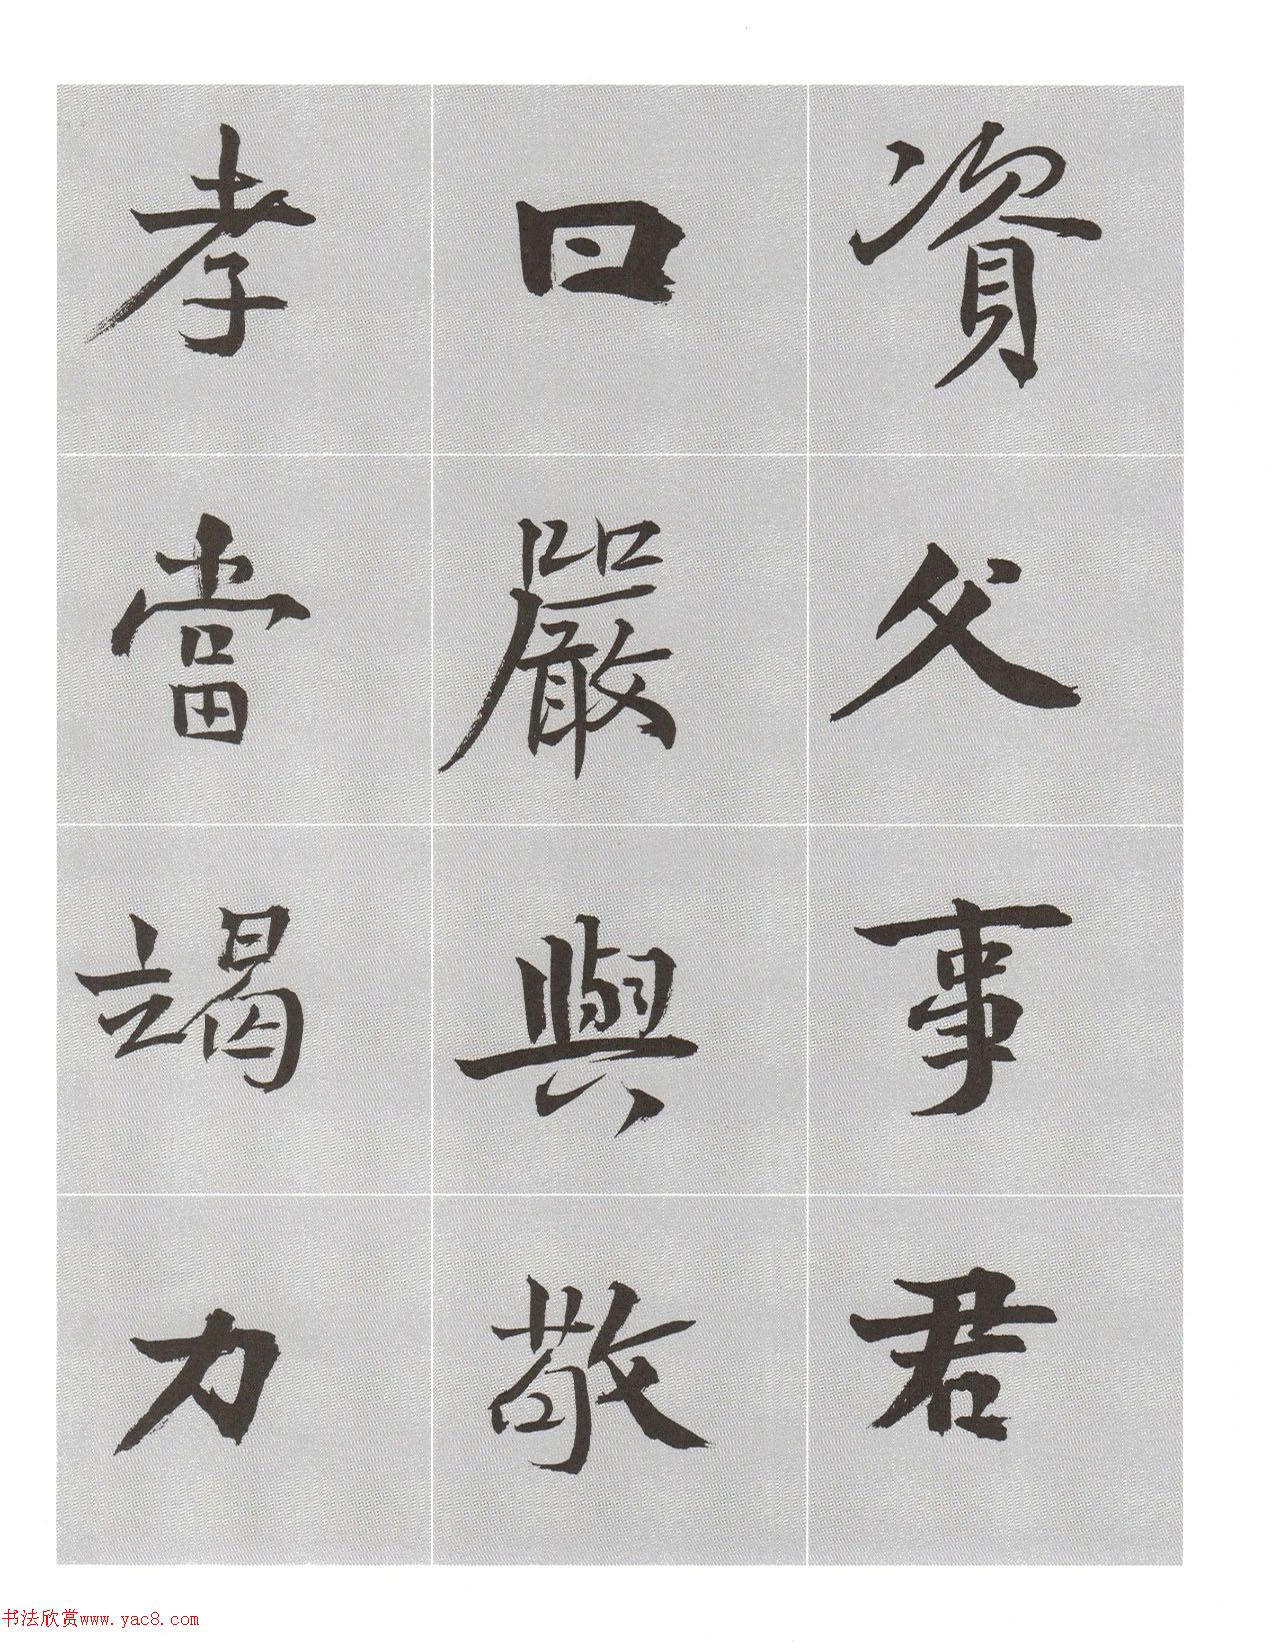 資父事君
曰嚴與敬
孝當竭力
书法欣赏www.yac8.com